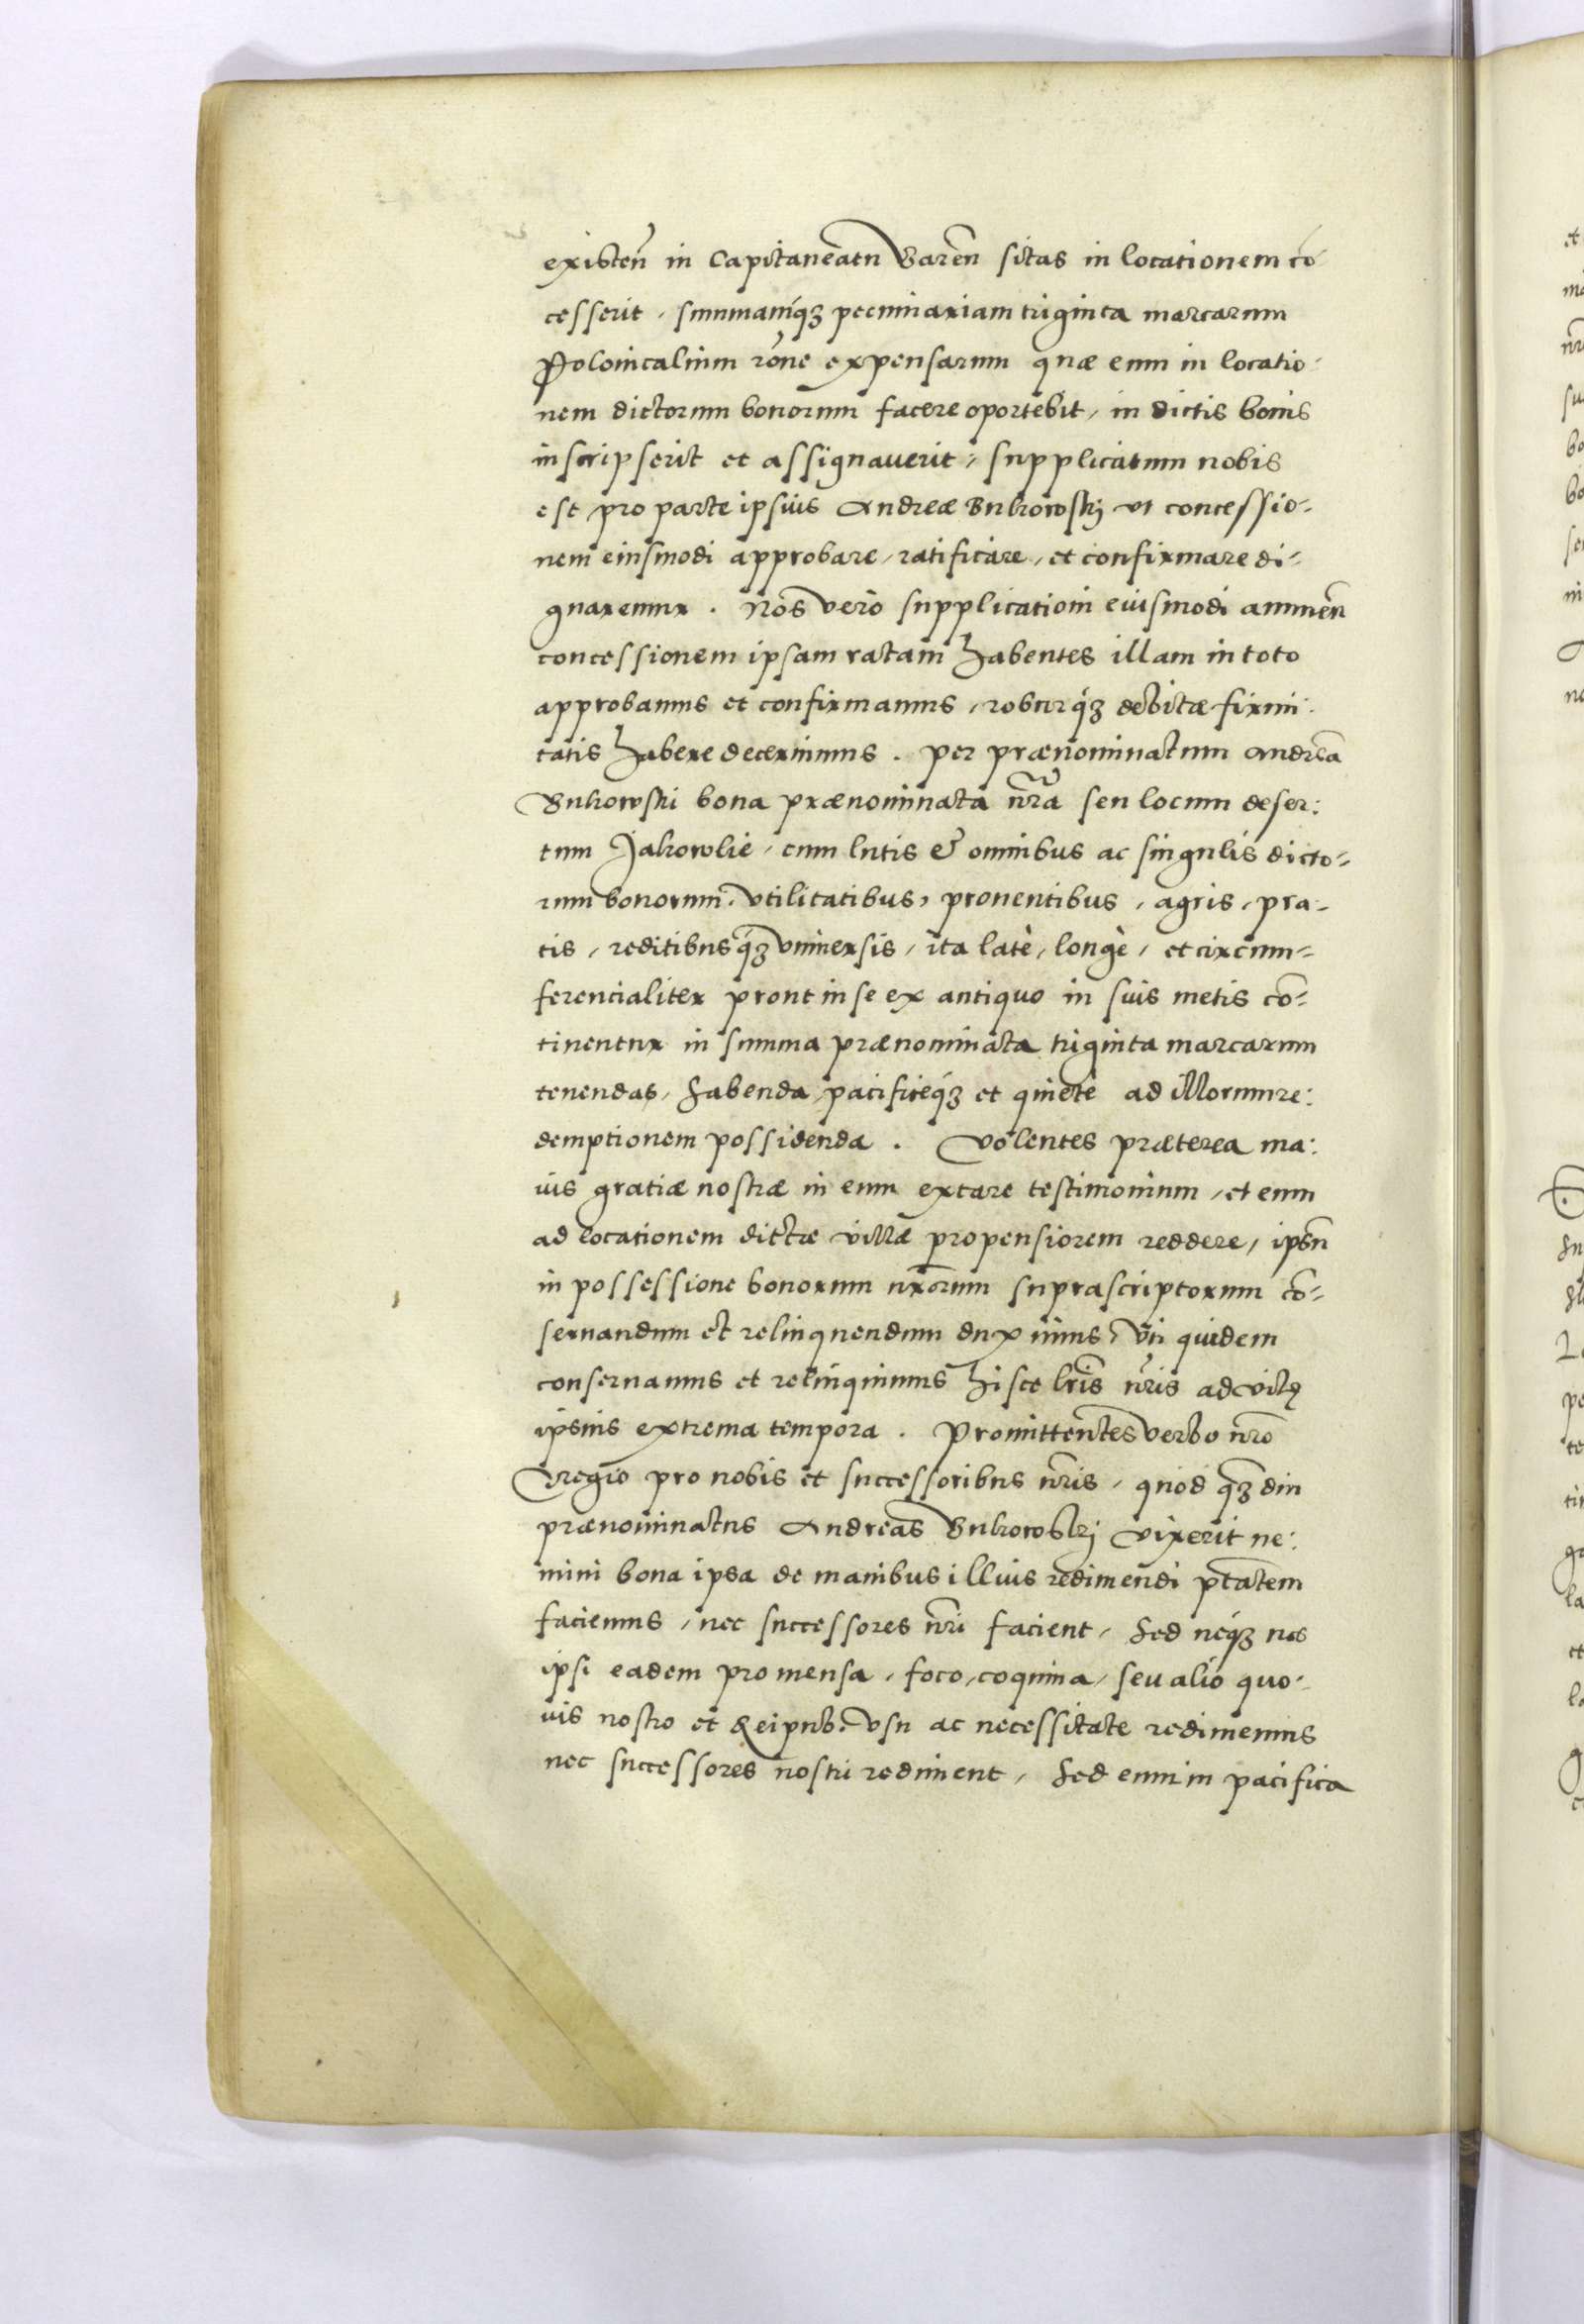 existeñ in Capitaneatu Bareñ sitas in locationem cō
cesserit, summamq́ꝫ pecuniariam triginta marcarum
Polonicalium rõne expensarum quæ eum in locatio-
nem dictorum bonorum facere oportebit, in dictis bonis
inscripserit et assignauerit, supplicatum nobis
est pro parte ipsius Andreæ Bukowskij vt concessio-
nem eiusmodi approbare, ratificare, et confirmare di-
gnaremur. Nos vero supplicationi eiusmodi annueñ
concessionem ipsam ratam habentes illam in toto
approbamus et confirmamus, roburq́ꝫ debitæ firmi-
tatis habere decernimus. per prænominatum Andreā
Bukowski bona prænominata nr̃a seu locum deser:
tum Jakowlie, cum lutis & omnibus ac singulis dicto-
rum bonorum vtilitatibus, prouentibus, agris, pra-
tis, reditibusq́ꝫ vniuersis, ita latè, longè, et circum-
ferencialiter prout in se ex antiquo in suis metis cō-
tinentur in summa prænominata triginta marcarum
tenendas, habenda, pacificeq́ꝫ et quiete ad illorum re:
demptionem possidenda. Volentes præterea ma:
ius gratiæ nostræ in eum extare testimonium, et eum
ad locationem dictæ villæ propensiorem reddere, ipsũ
in possessione bonorum nr̃orum suprascriptorum cō-
seruandum et relinquendum duximus, vti quidem
conseruamus et relinquimus hisce lr̃is nr̃is ad vitę
ipsius extrema tempora. Promittentes verbo nr̃o
regio pro nobis et successoribus nr̃is, quod q̃ꝫ diu
prænominatus Andreas Bukowskij vixerit ne:
mini bona ipsa de manibus illius redimendi ptãtem
faciemus, nec successores nr̃i facient, sed neq́ꝫ nos
ipsi eadem pro mensa, foco, coquina, seu alio quo-
uis nostro et Reipub. vsu ac necessitate redimemus
nec successores nostri rediment, sed eum in pacifica